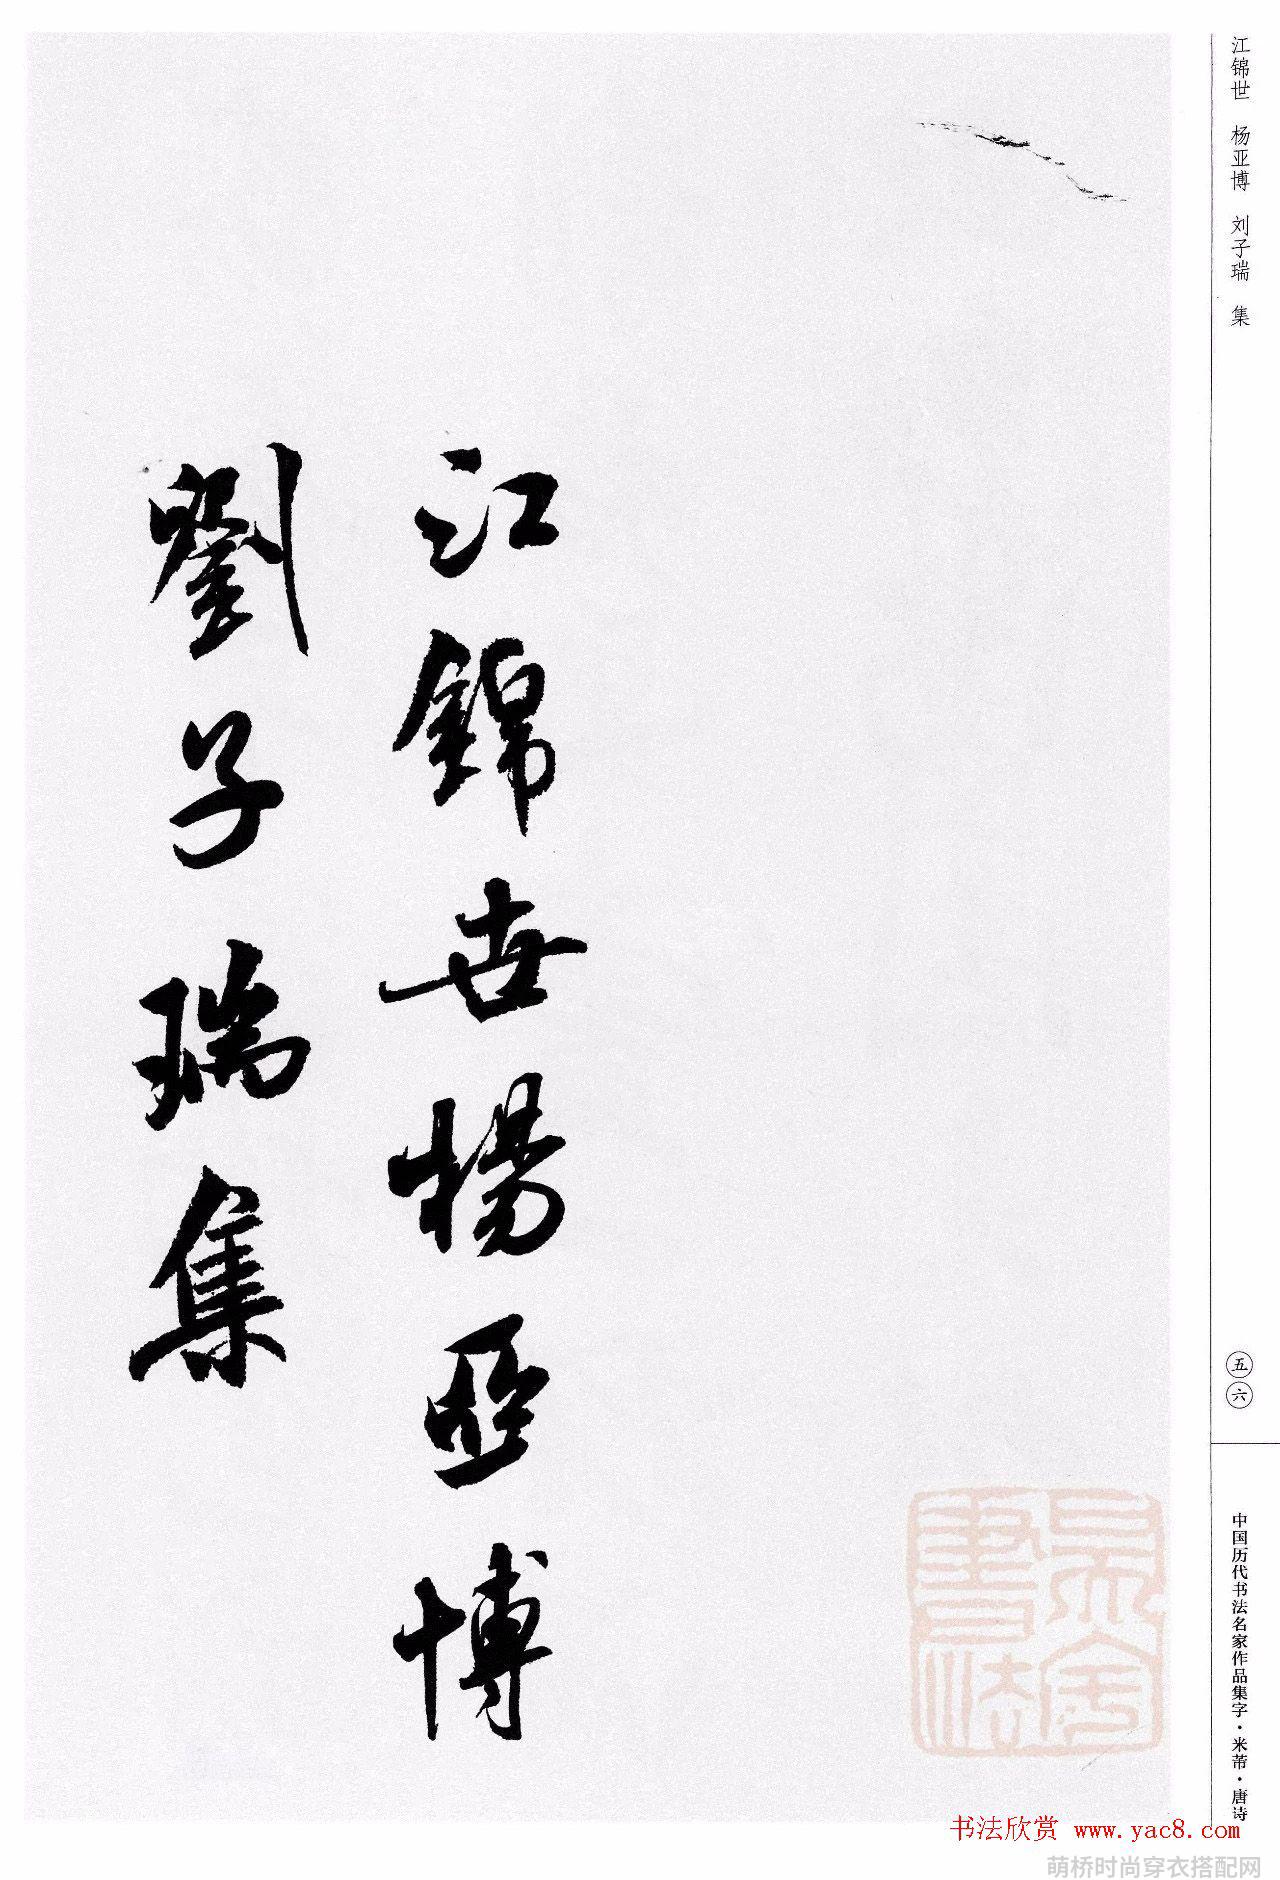 江锦世 杨亚博 刘子瑞 集
江錦世楊亞博
劉子瑞集
五六
中国历代书法名家作品集字·米芾·唐诗
书法欣赏 www.yac8.com
萌桥时尚穿衣搭配网